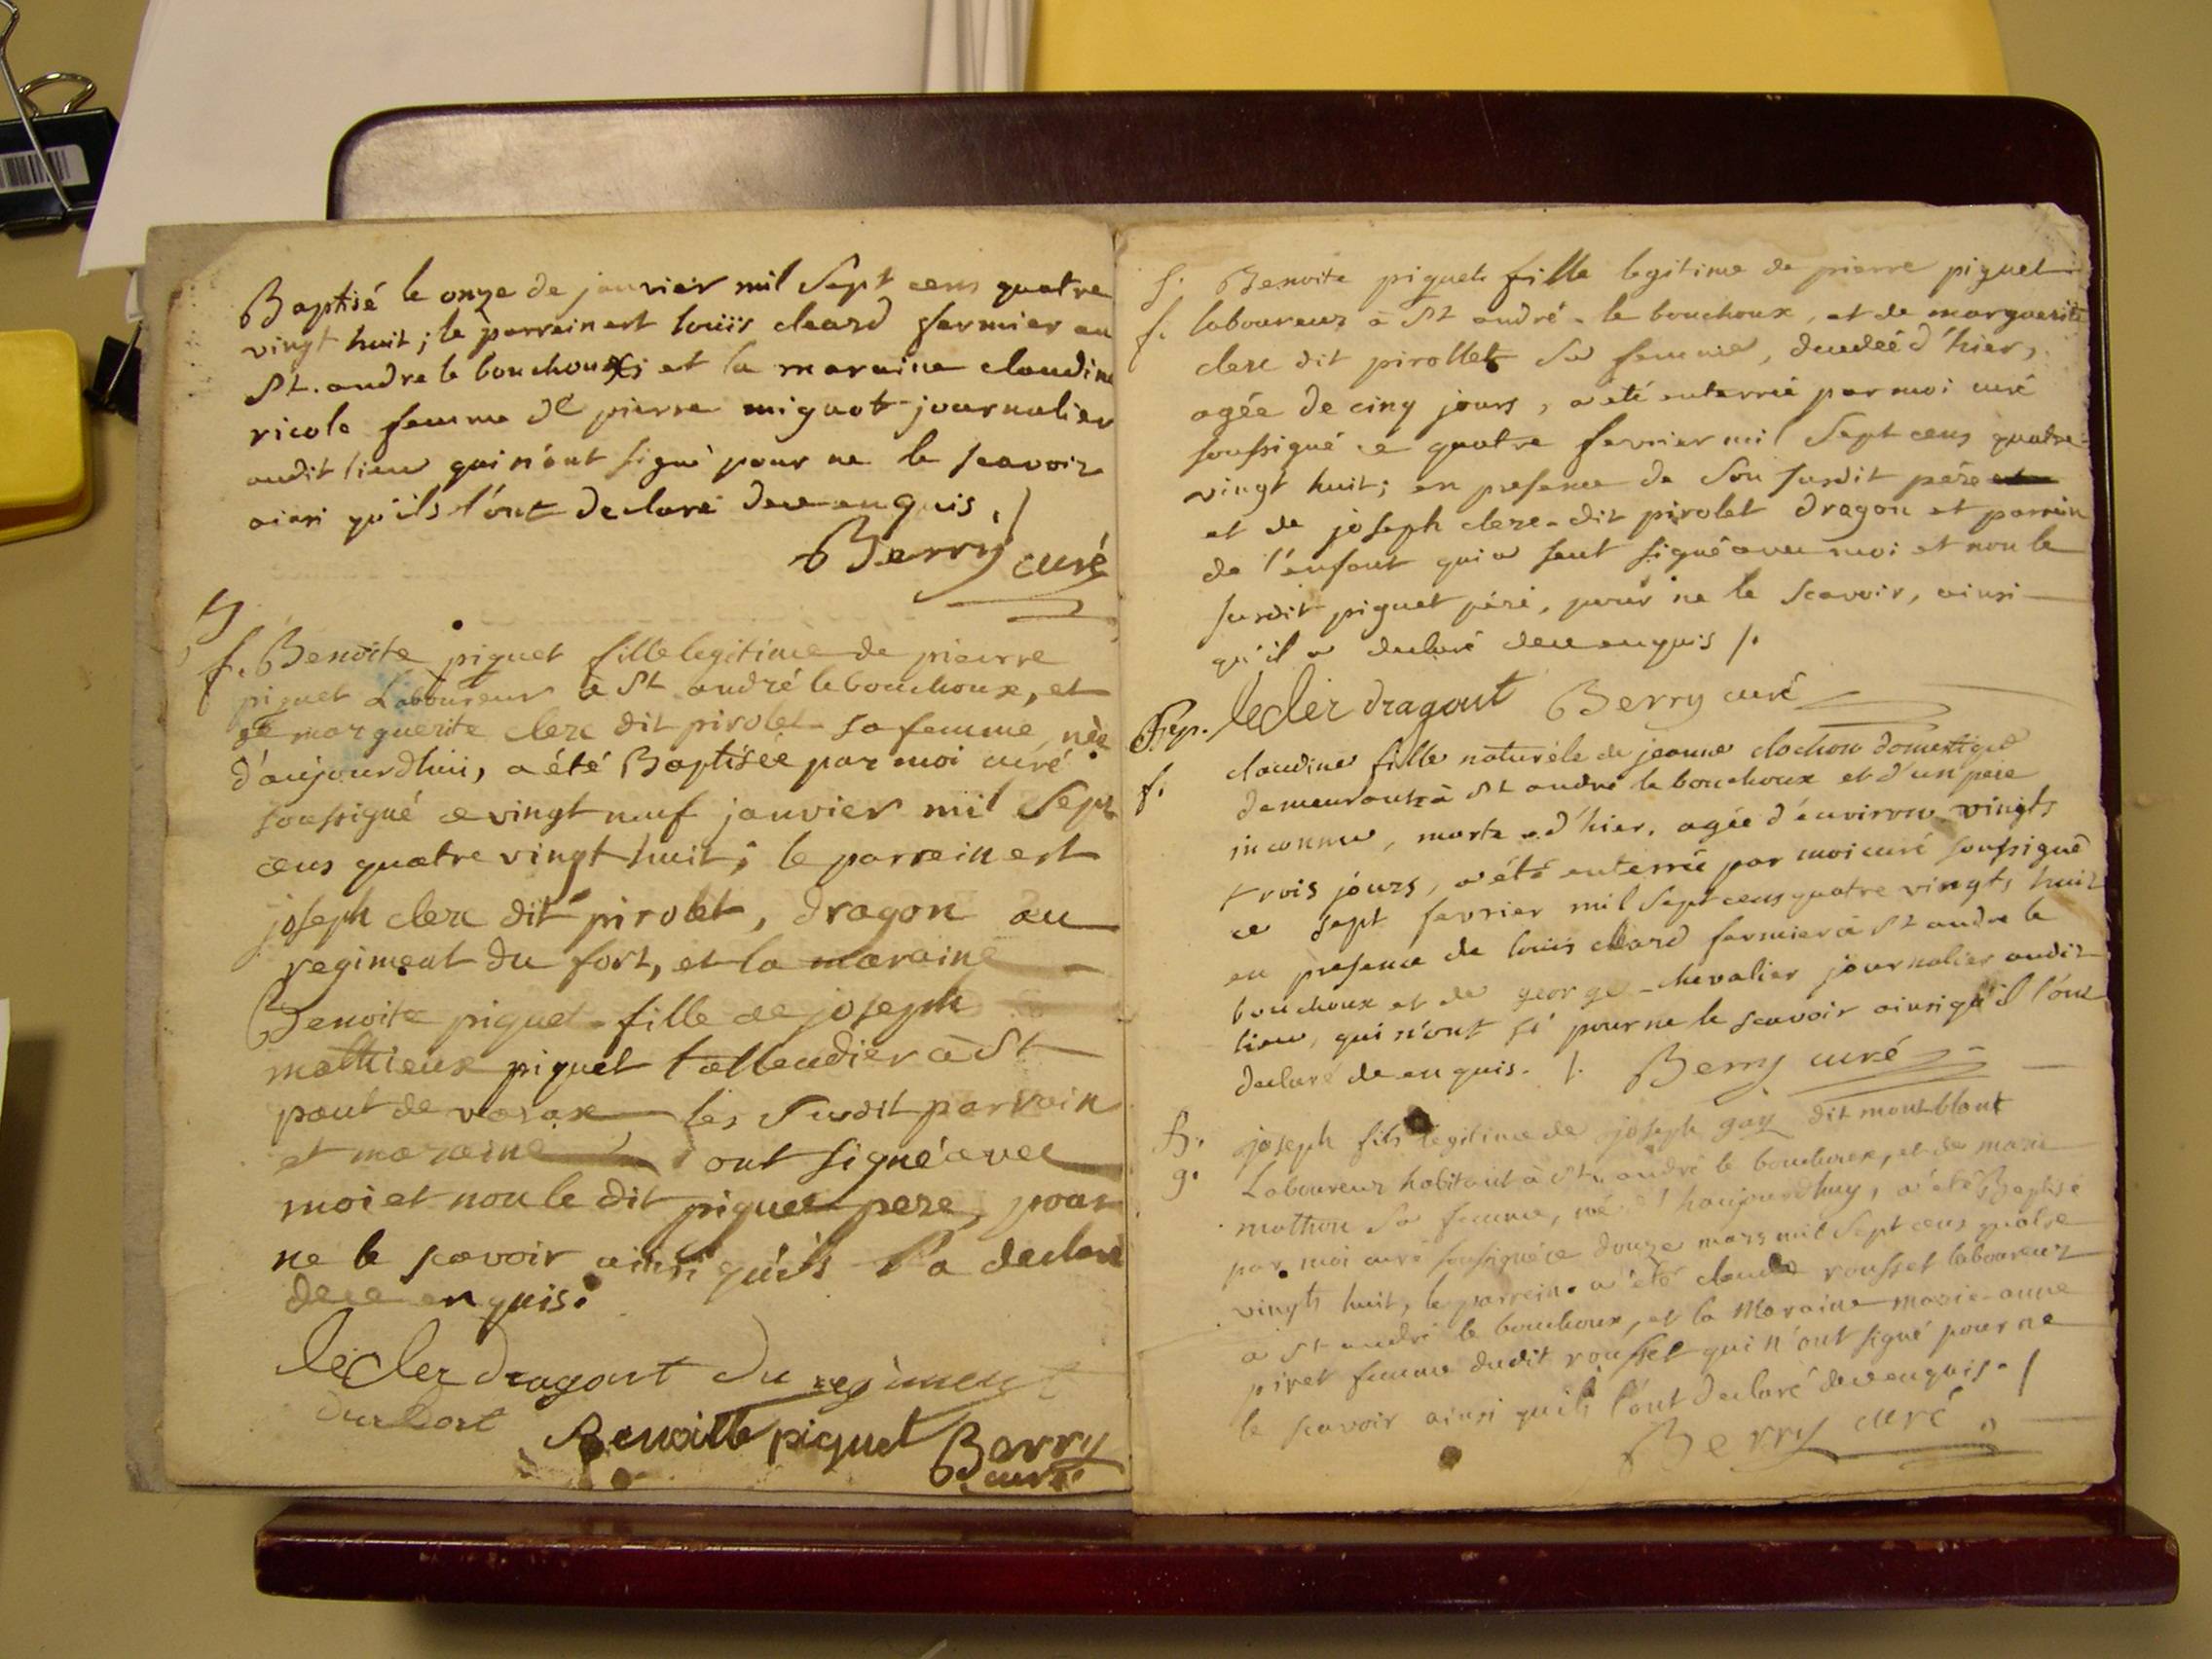 Baptisé le onze de janvier mil Sept cens quatre
vingt huit; le parrein est louïs cleard fermier au
St. andre le bouchoux; et la maraine claudine
ricole femme de pierre miguot journalier
audit lieu qui n'ont signé pour ne le scavoir
ainsi qu'ils l'ont declaré dece enquis ./
Berry curé
f. Benoite piquet fille legitime de pierre
piquet Laboureur à St andré le bouchoux, et
de marguerite clerc dit pirolet sa femme, née
d'aujourdhui, a été Baptisée par moi curé
soussigné ce vingt neuf janvier mil Sept
cens quatre vingt huit; le parrein est
joseph clerc dit pirolet, dragon au
regiment du fort, et la maraine
Benoite piquet fille de joseph
mathieux piquet tallendier à St
paul de varax les Susdit parrain
et maraine ont signé avec
moi et non le dit piquet pere, pour
ne le scavoir ainsi qu'ils l'a declaré
dece enquis.
leCler dragont du regiment
Benoitte piquet Berry
curé
S. Benoite piquet fille legitime de pierre piquet
f. laboureur à St andré le bouchoux, et de marguerite
clerc dit pirollet sa femme, décedéé d'hier,
agée de cinq jours, a été enterrée par moi curé
soussigné ce quatre fevrier mil Sept cens quatre
vingt huit; en presence de Son susdit pére
et de joseph clerc dit pirolet dragon et parrein
de l'enfant qui a seul signé avec moi et non le
susdit piquet péré, pour ne le scavoir, ainsi
qu'il a declaré dece enquis /.
Sep. leCler dragont Berry curé
claudine fille naturéle de jeanne clochon domestique
f. demeurant à St andré le bouchoux et d'un pere
inconnu, morte d'hier, agée d'environ vingts
trois jours, a été enterrée par moi curé soussigné
ce sept fevrier mil Sept cens quatre vingts huit
en presence de louis cleard fermier à St andre le
bouchoux et de george chevalier journalier audit
lieu, qui n'ont si pour ne le scavoir ainsi qu'il l'ont
declaré de enquis. /. Berry curé
B. joseph fils legitime de joseph gay dit montblant
g. Laboureur habitant à St. andré le bouchoux, et de marie
mathon sa femme, né d'haujourdhuy, a été Baptisé
par moi curé soussigné ce douze mars mil Sept cens quatre
vingts huit, le parrein a été claude rousset laboureur
à St andré le bouchoux, et la Maraine marie anne
piret femme dudit rousset qui n'ont signé pour ne
le scavoir ainsi qu'ils l'ont declaré dece enquis. /
Berry curé.